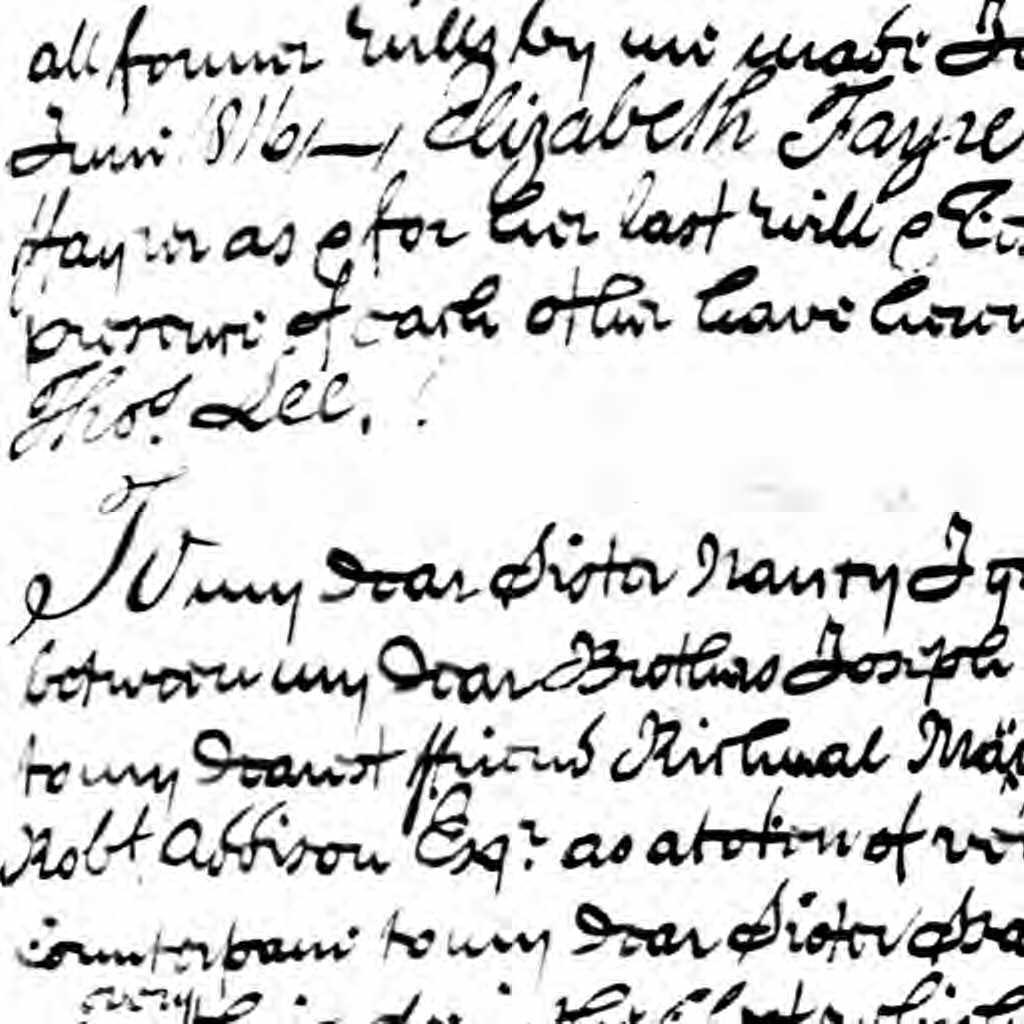 all former Wills by me made In
June 1816 — Elizabeth Fayre
Fayrer as & for her last Will & Tes
presence of each other have hereun
Thos. Lee.
To my Dear Sister Nancy I g
between my Dear Brothers Joseph
to my Dearest ffriend Richmal
Robt. Addison Esqr. as a token of
counterpane to my Dear Sister
every